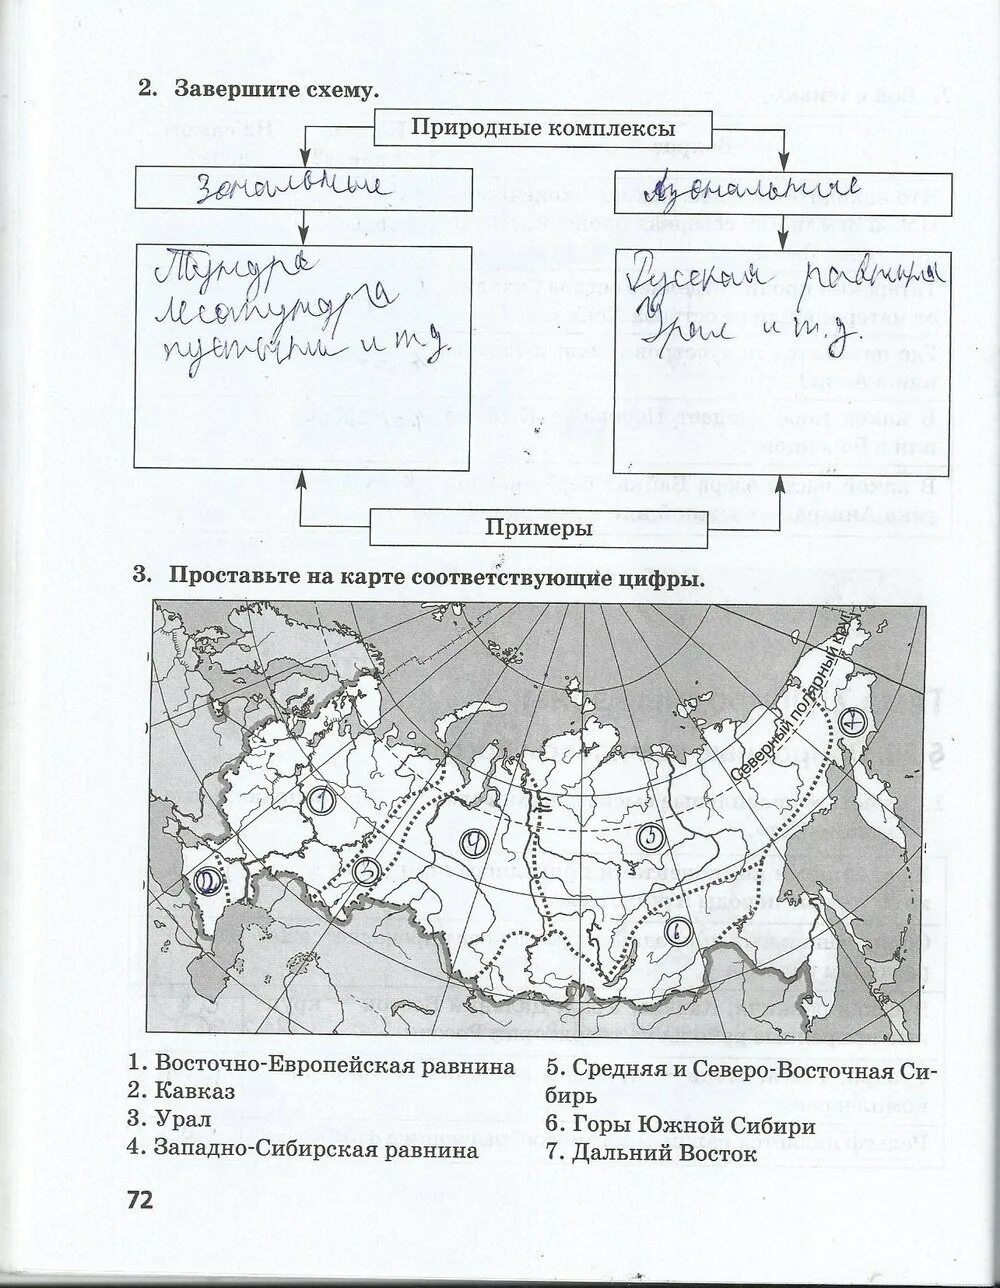 2. Завершите схему.
Природные комплексы
Зональные
Азональные
Тундра
лесотундра
пустыни и т.д.
Русская равнина
Урал и т.д.
Примеры
3. Проставьте на карте соответствующие цифры.
Северный полярный круг
7
1
5
4
3
2
6
1. Восточно-Европейская равнина
2. Кавказ
3. Урал
4. Западно-Сибирская равнина
5. Средняя и Северо-Восточная Си-
бирь
6. Горы Южной Сибири
7. Дальний Восток
72